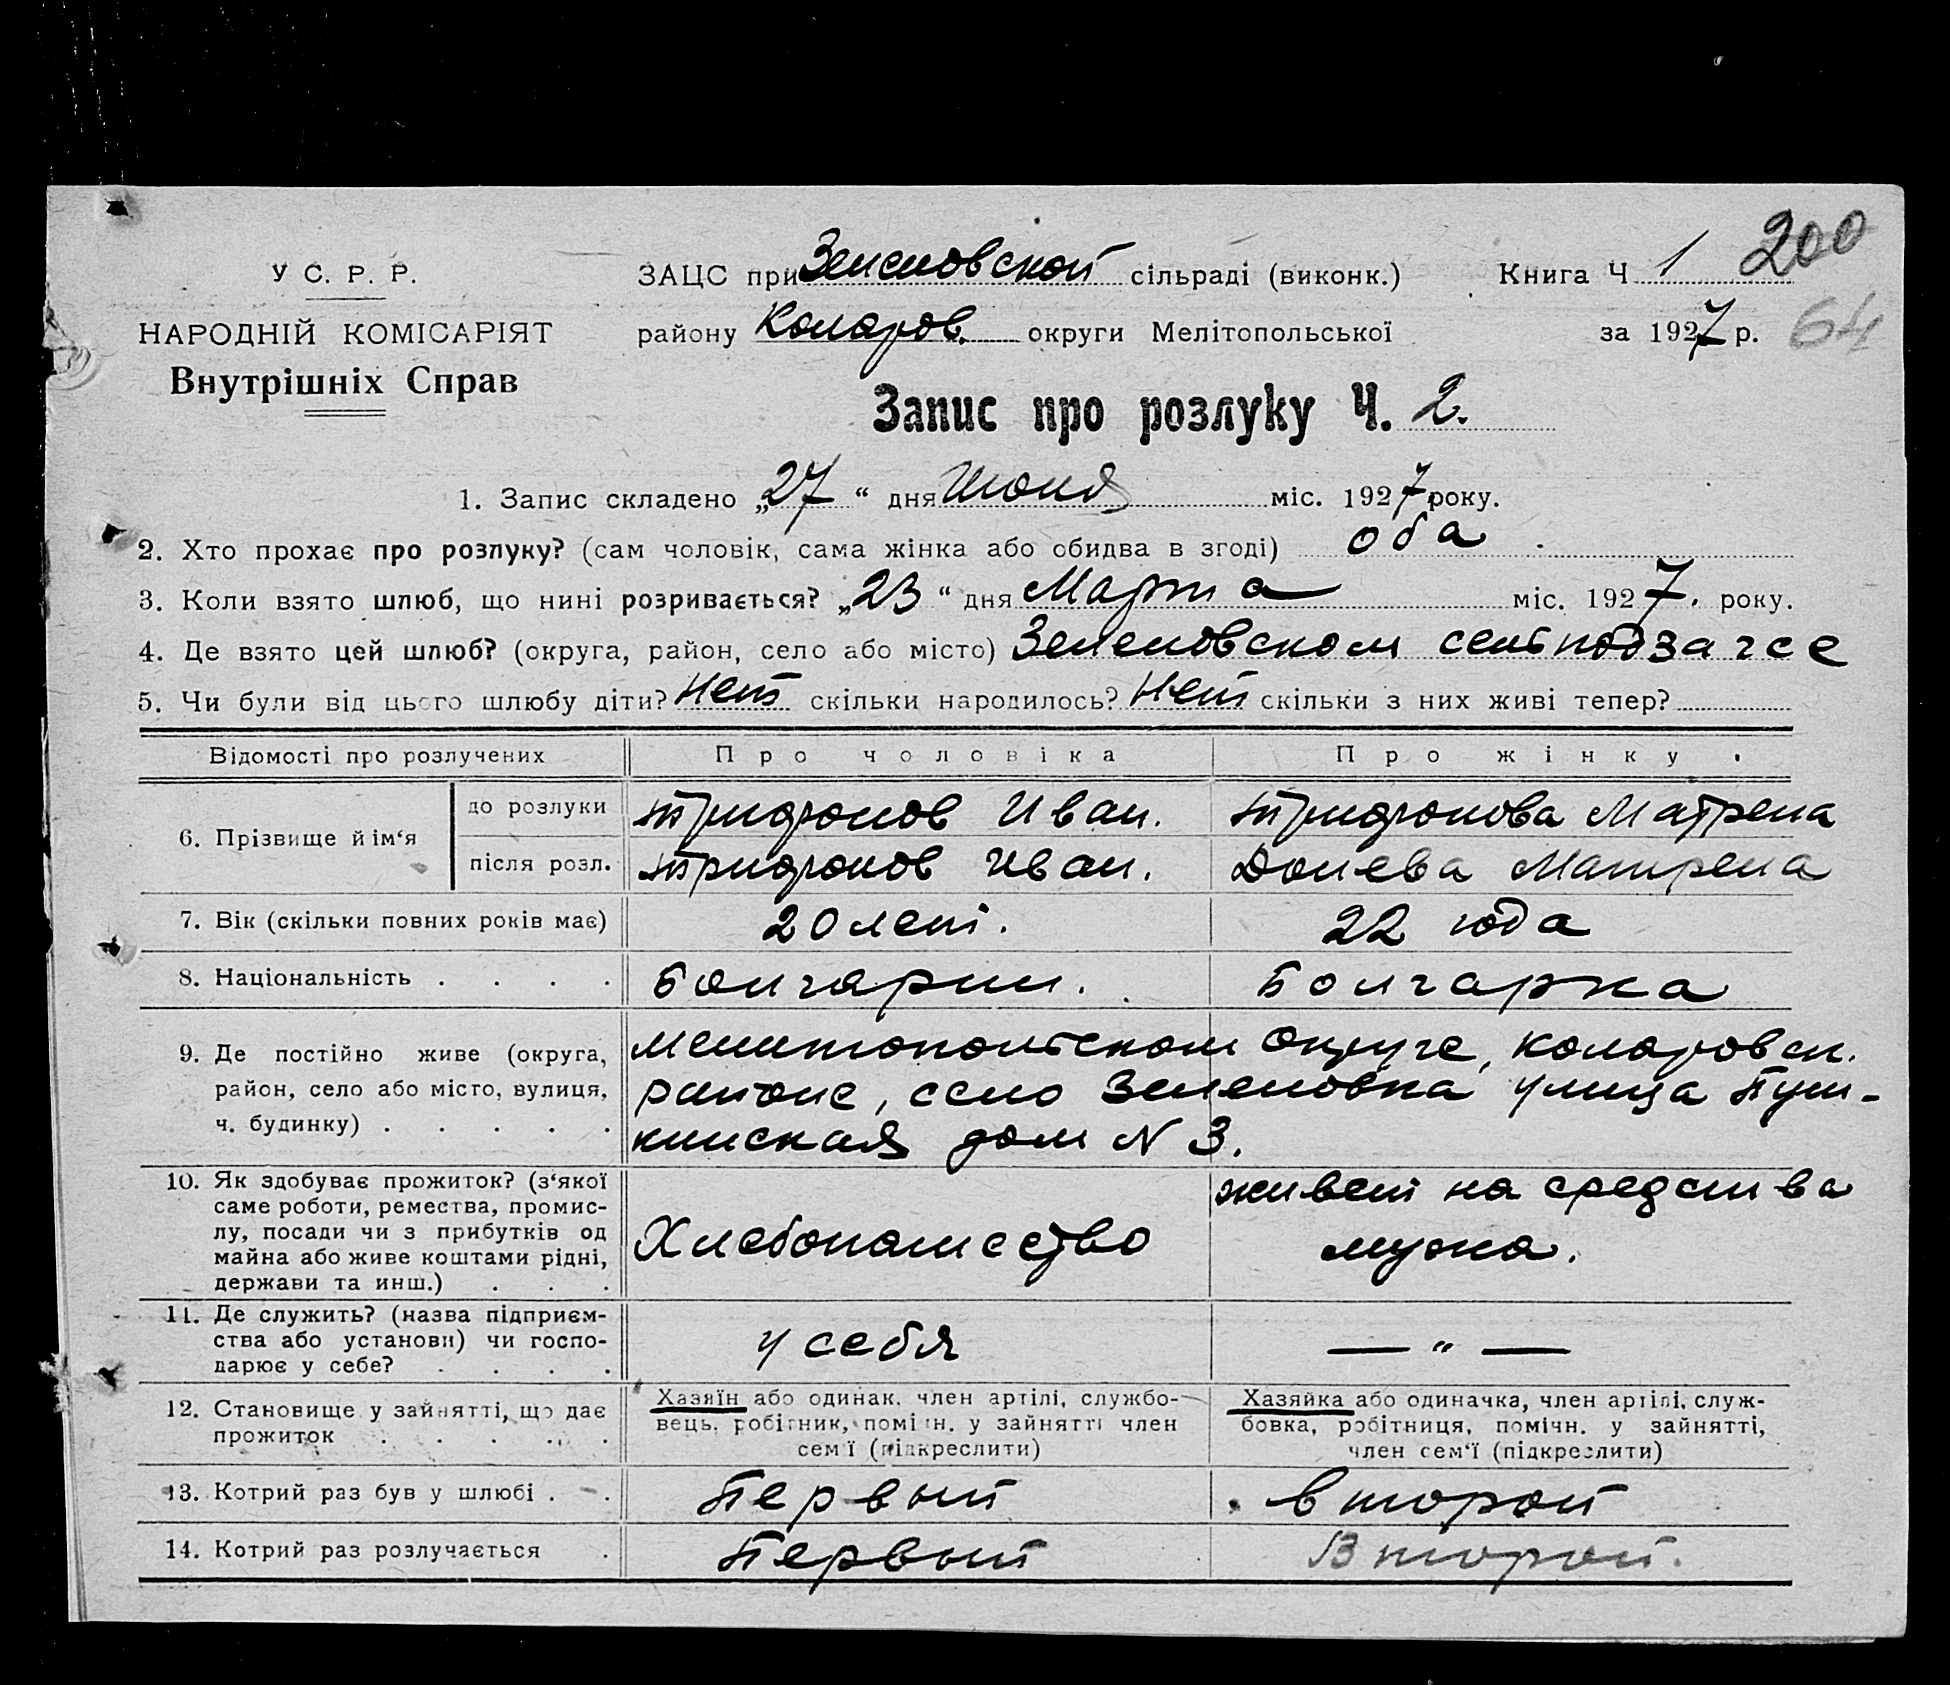 200
У С. Р. Р.
ЗАЦС при Зеленовской сільраді (виконк.) Книга Ч 1
НАРОДНІЙ КОМІСАРІЯТ
району Коларов. округи Мелітопольської за 1927 р. 64
Внутрішніх Справ
Запис про розлуку Ч. 2.
1. Запис складено „27“ дня Июня міс. 1927 року.
2. Хто прохає про розлуку? (сам чоловік, сама жінка або обидва в згоді) оба
3. Коли взято шлюб, що нині розривається? „23“ дня Марта міс. 1927. року.
4. Де взято цей шлюб? (округа, район, село або місто) Зеленовском сельподзагсе
5. Чи були від цього шлюбу діти? Нет скільки народилось? Нет скільки з них живі тепер?
Відомості про розлучених Про чоловіка Про жінку
6. Прізвище й ім‘я до розлуки Трифонов Иван. Трифонова Матрена
після розл. Трифонов Иван. Донева Матрена
7. Вік (скільки повних років має) 20 лет. 22 года
8. Національність . . . . Болгарин. Болгарка
9. Де постійно живе (округа, район, село або місто, вулиця, ч. будинку) . . . . .
Мелитопольском округе, Коларовск.
районе, село Зеленовка улица Пуш-
кинская дом N 3.
10. Як здобуває прожиток? (з‘якої
саме роботи, ремества, промис-
лу, посади чи з прибутків од
майна або живе коштами рідні,
держави та инш.) . . .
Хлебопашество
живет на средства
мужа.
11. Де служить? (назва підприєм-
ства або установи) чи госпо-
дарює у себе? . . . .
у себя — „ —
12. Становище у зайнятті, що дає
прожиток . . . . .
Хазяїн або одинак. член артілі, службо-
вець, робітник, помічн. у зайнятті член
сем‘ї (підкреслити)
Хазяйка або одиначка, член артілі, служ-
бовка, робітниця, помічн. у зайнятті,
член сем‘ї (підкреслити)
13. Котрий раз був у шлюбі . . Первый второй
14. Котрий раз розлучається . Первый Второй.